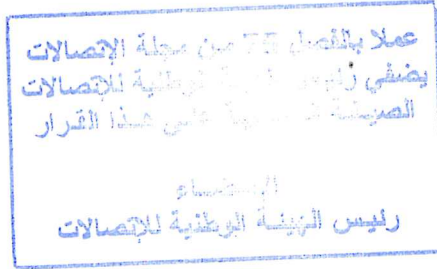 عملا بالفصل 75 من مجلة الإتصالات
يضفي رئيس الوطنية للإتصالات
الصيغة على هذا القرار
الإمضاء
رئيس الهيئة الوطنية للإتصالات